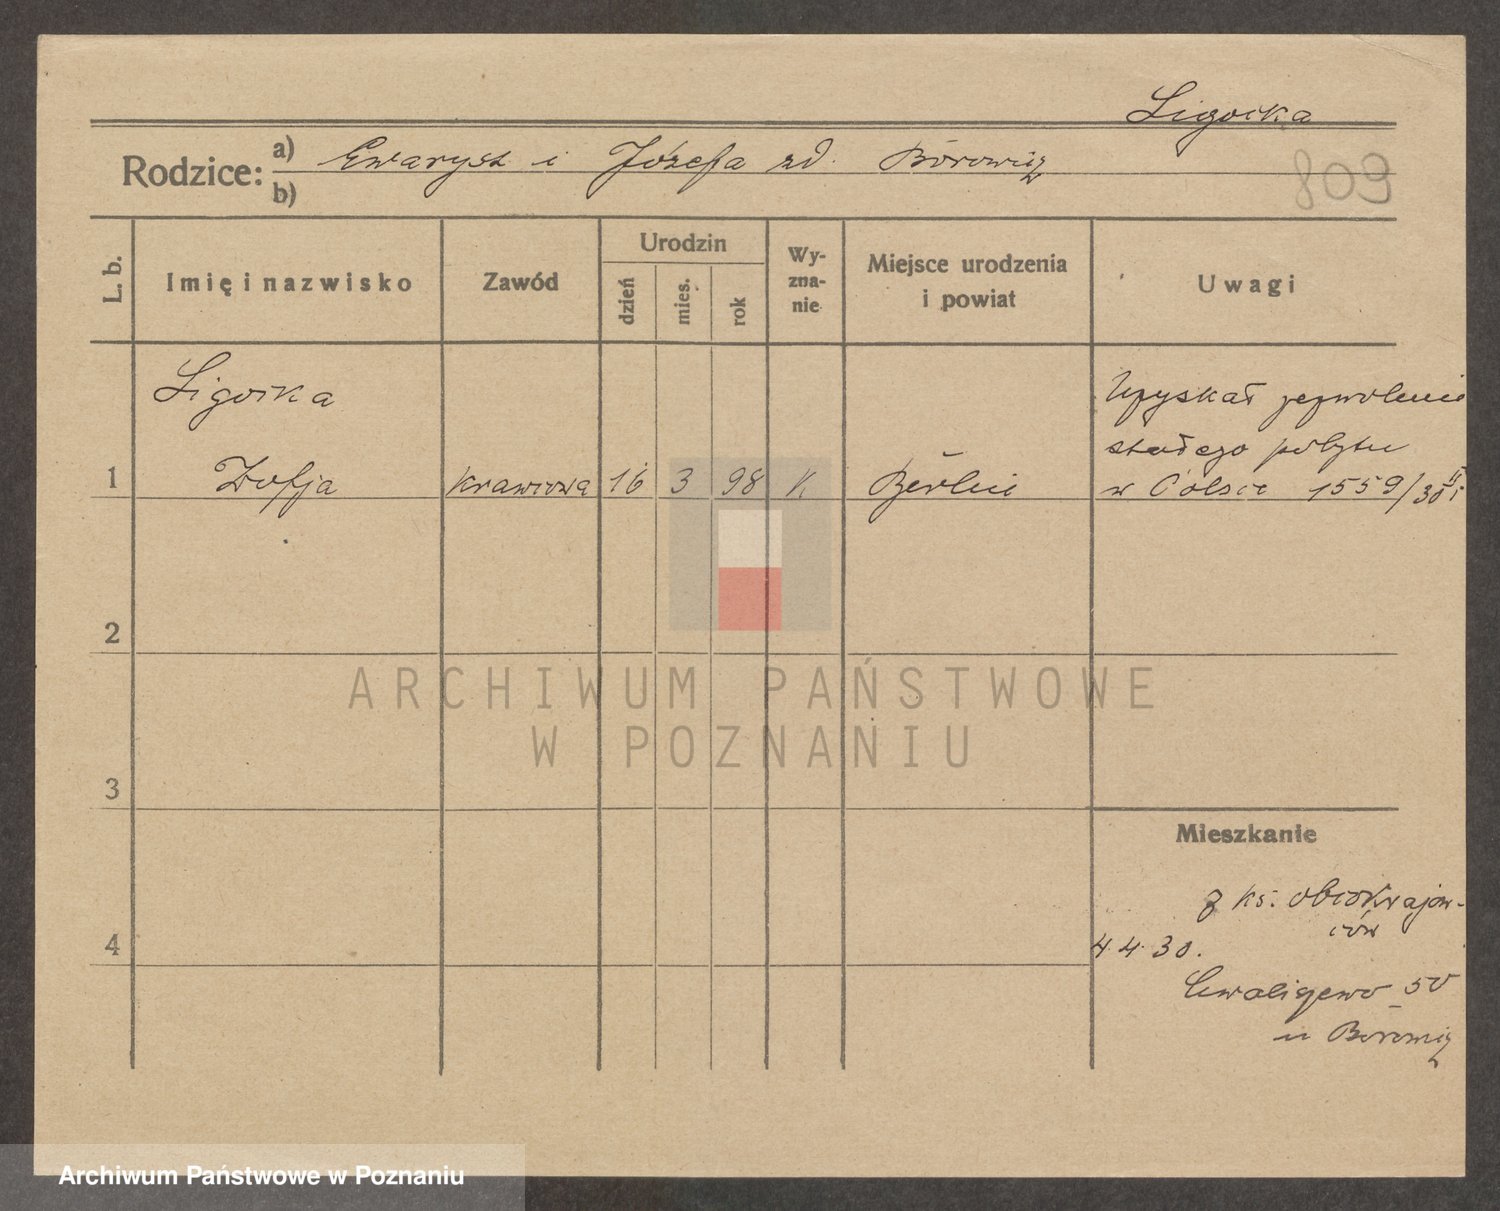 Ligocka
Rodzice: a) Ewaryst i Józefa zd. Borowicz
b)
809
L. b.
Imię i nazwisko
Zawód
Urodzin
dzień
mies.
rok
Wy-
zna-
nie
Miejsce urodzenia
i powiat
Uwagi
Ligocka
1 Zofja krawcowa 16 3 98 K Berlin
Uzyskał zezwolenie
stałego pobytu
w Polsce 1559/30 II
2
3
4
ARCHIWUM PAŃSTWOWE
W POZNANIU
Mieszkanie
z ks. obcokrajow-
ców
4.4.30.
50
u Borowicz
Archiwum Państwowe w Poznaniu